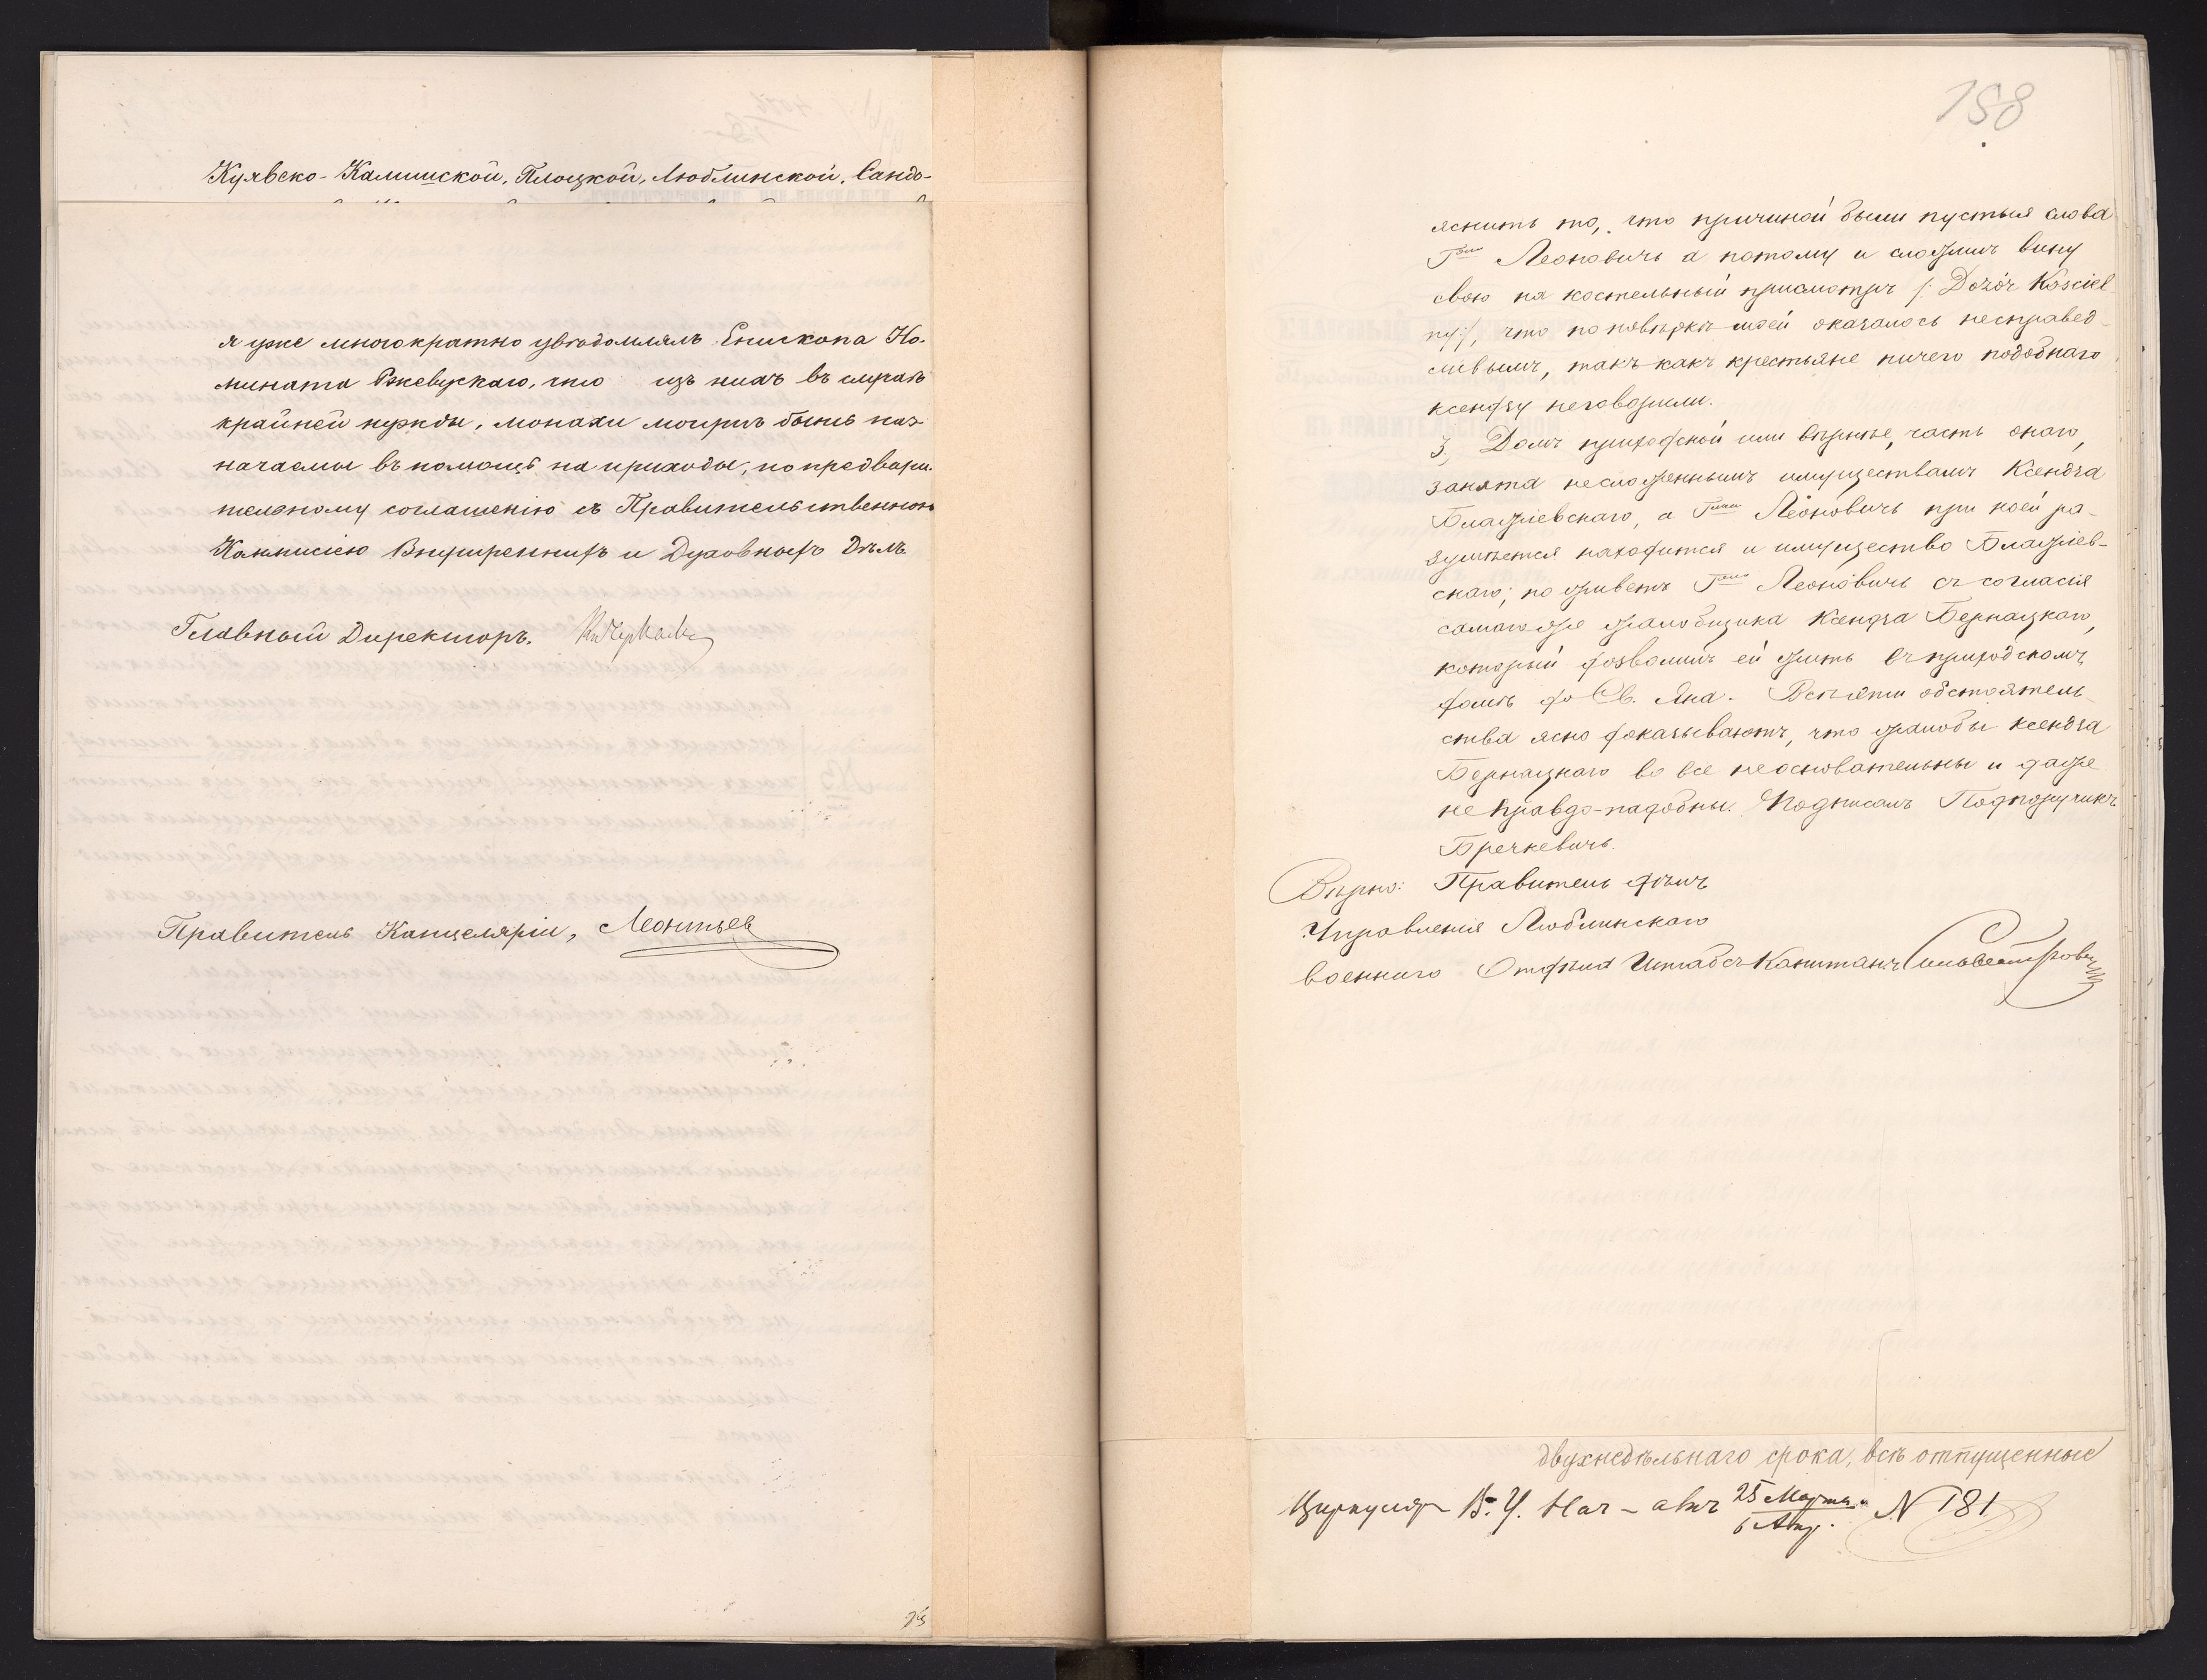 Куявско-Калишской, Плоцкой, Люблинской, Сандо-
я уже многократно увѣдомлялъ Епископа Но-
мината Ржевускаго, что изъ нихъ въ случаѣ
крайней нужды, монахи могутъ быть наз-
начаемы въ помощь на приходы, по предвари-
тельному соглашенію съ Правительственною
Коммисіею Внутреннихъ и Духовныхъ Дѣлъ
Главный Директоръ.
Правитель Канцеляріи, Леонтьевъ
158
яснить то, что причиной были пустыя слова
Г-жи Леоновичъ а потому и сложилъ вину
свою на костельный присмотръ /: Dozór Kościel-
ny:/, что по повѣркѣ моей оказалось несправед-
ливымъ, такъ какъ крестьяне ничего подобнаго
ксендзу неговорили.
3, Домъ приходской или вѣрнѣе, часть онаго,
занята несложеннымъ имуществамъ Ксендза
Блажіевскаго, а Г-жи Леоновичъ при ней ра-
зумѣется находится и имущество Блажіев-
скаго; но живетъ Г-жа Леоновичъ съ согласія
самаго же жалобщика Ксендза Бернацкаго,
который дозволилъ ей жить въ приходскомъ
домѣ до Св. Яна. Всѣ эти обстоятель-
ства ясно доказываютъ, что жалобы ксендза
Бернацкаго во все неосновательны и даже
не правдо-падобны. Подписалъ Подпоручикъ
Бречкевичъ.
Вѣрно: Правитель дѣлъ
Управленія Люблинскаго
военнаго Отдѣла Штабсъ-Капитанъ Сильвестровичъ
двухнедѣльнаго срока, всѣ отпущенные
Циркуляр В. У. Нач-амъ 25 Марта N 181
6 Апр.